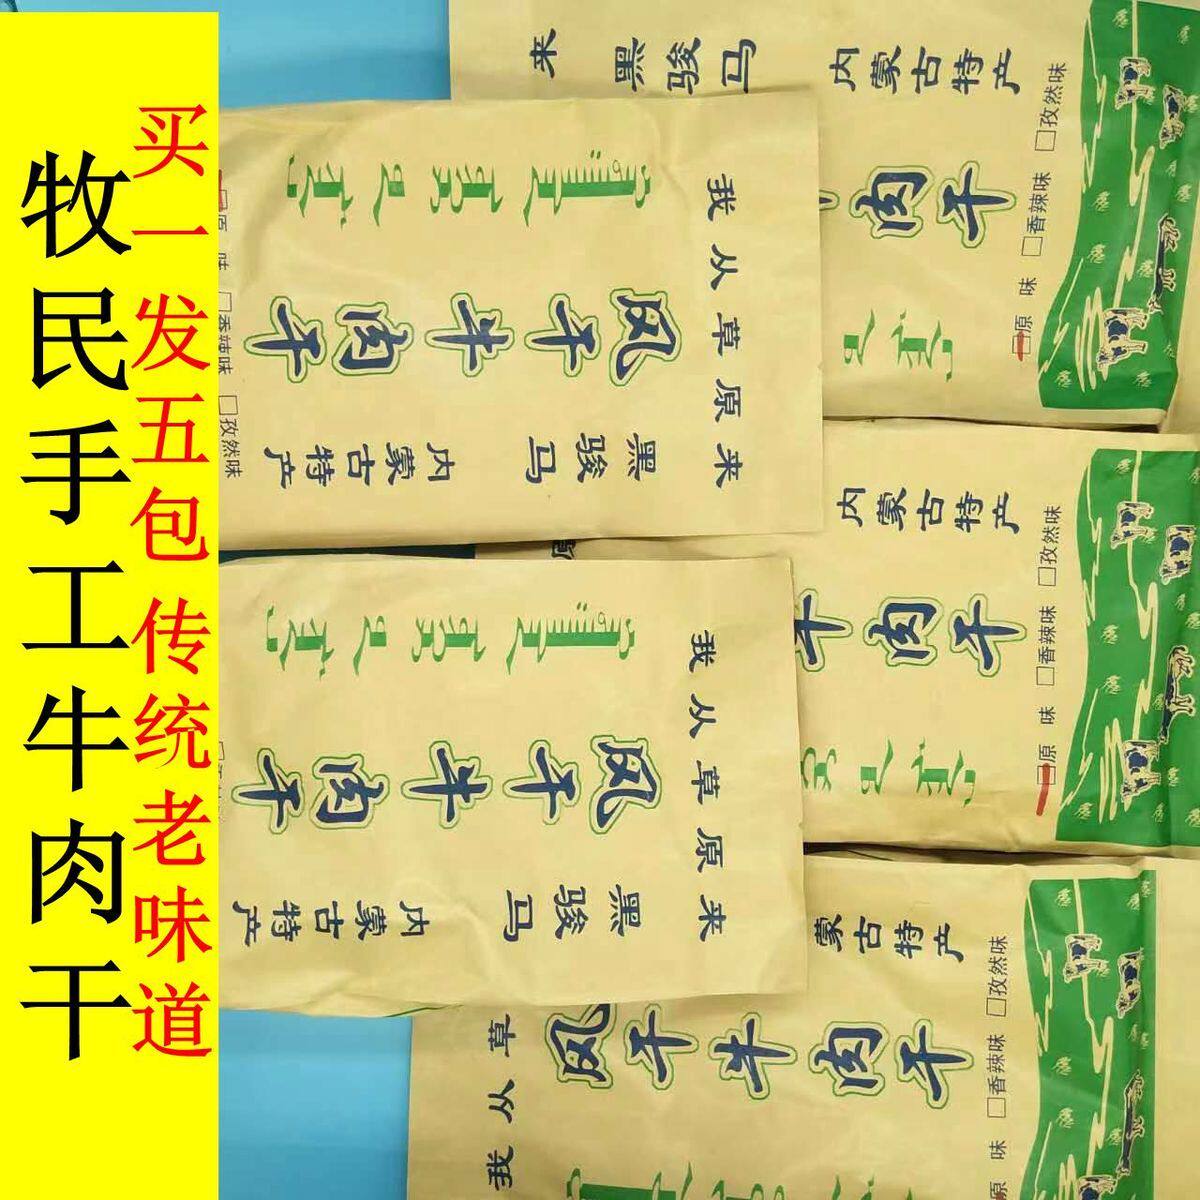 牧民手工牛肉干
买一发五包 传统老味道
来
黑骏马
内蒙古特产
肉干
□原 味 □香辣味 □孜然味
我从草原来
风干牛肉干
黑骏马
内蒙古特产
□原 味 □香辣味 □孜然味
内蒙古特产
牛肉干
□原 味 □香辣味 □孜然味
我从草原来
风干牛肉干
黑骏马
内蒙古特产
我从草
风干牛肉干
蒙古特产
原 味 □香辣味 □孜然味